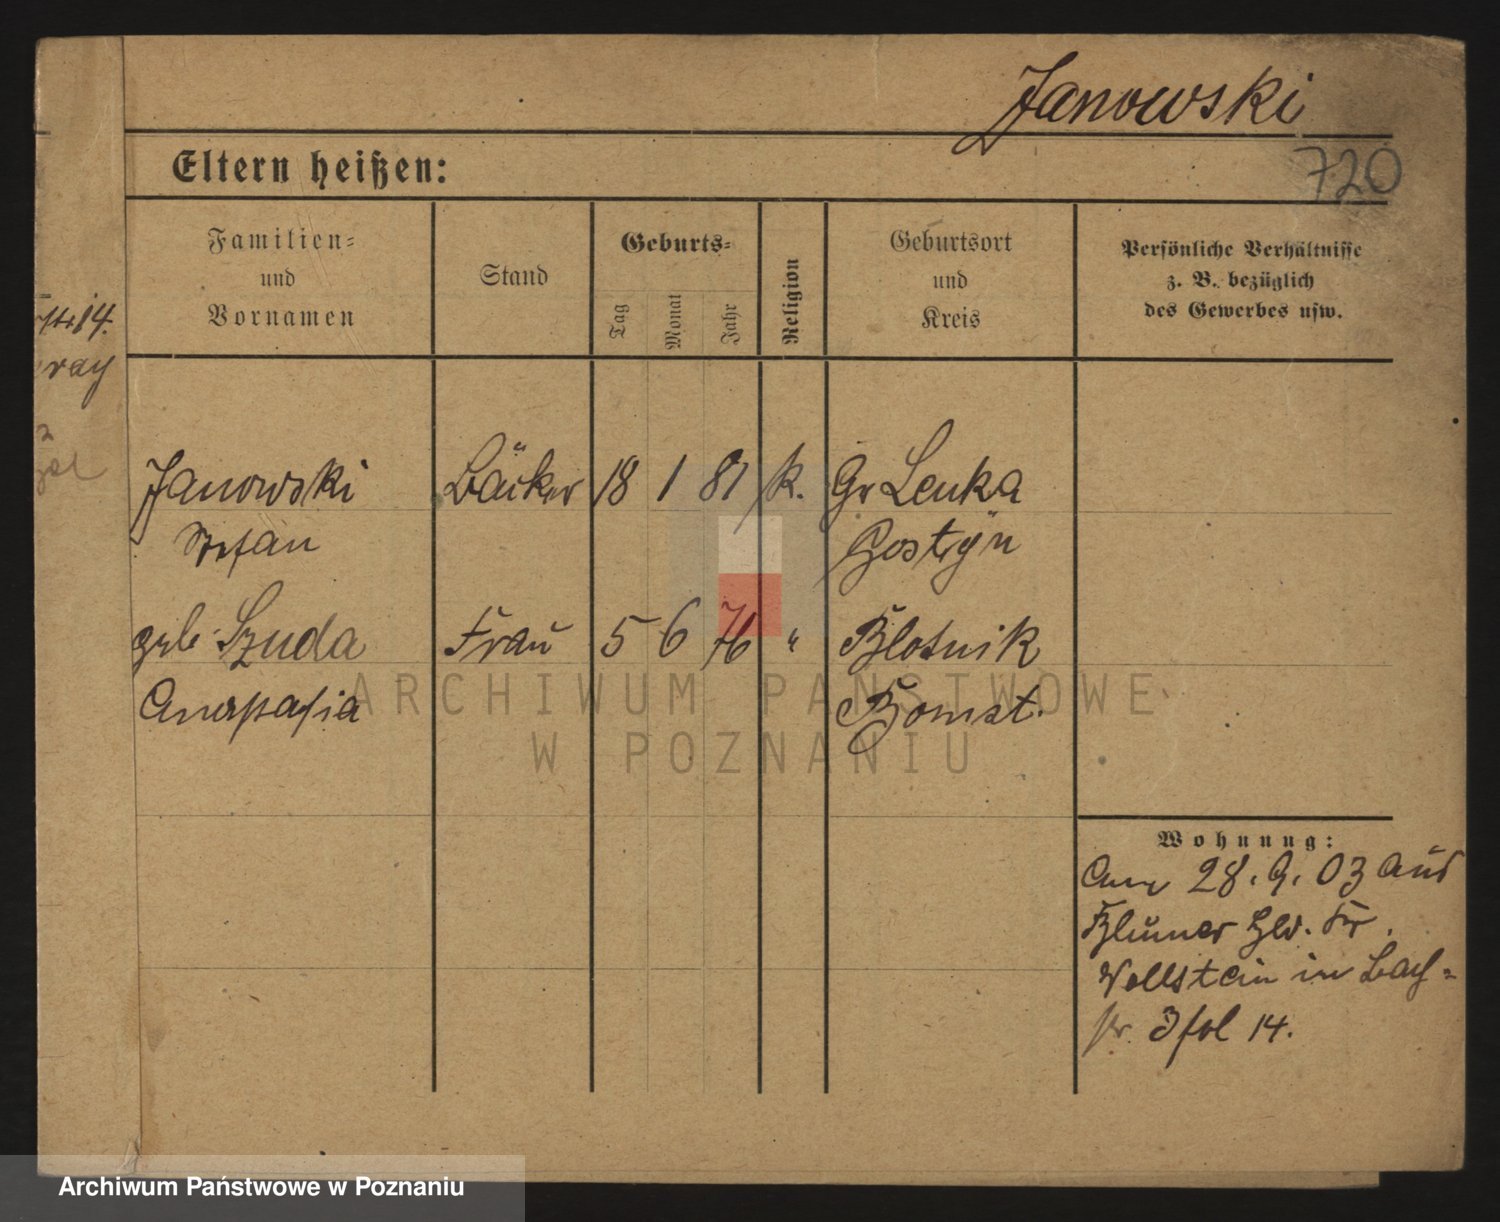 Janowski
720
Eltern heißen:
Familien-
und
Vornamen
Stand
Geburts-
Tag
Monat
Jahr
Religion
Geburtsort
und
Kreis
Persönliche Verhältnisse
z. B. bezüglich
des Gewerbes usw.
Janowski Bäcker 18 1 81 k. Gr Lenka
Stefan Gostyn
geb. Szuda Frau 5 6 76 " Blotnik
Anastasia Bomst.
Wohnung:
28. 9. 03 aus
Wollstein in Bach-
str. 3 fol 14.
ARCHIWUM PAŃSTWOWE
W POZNANIU
Archiwum Państwowe w Poznaniu